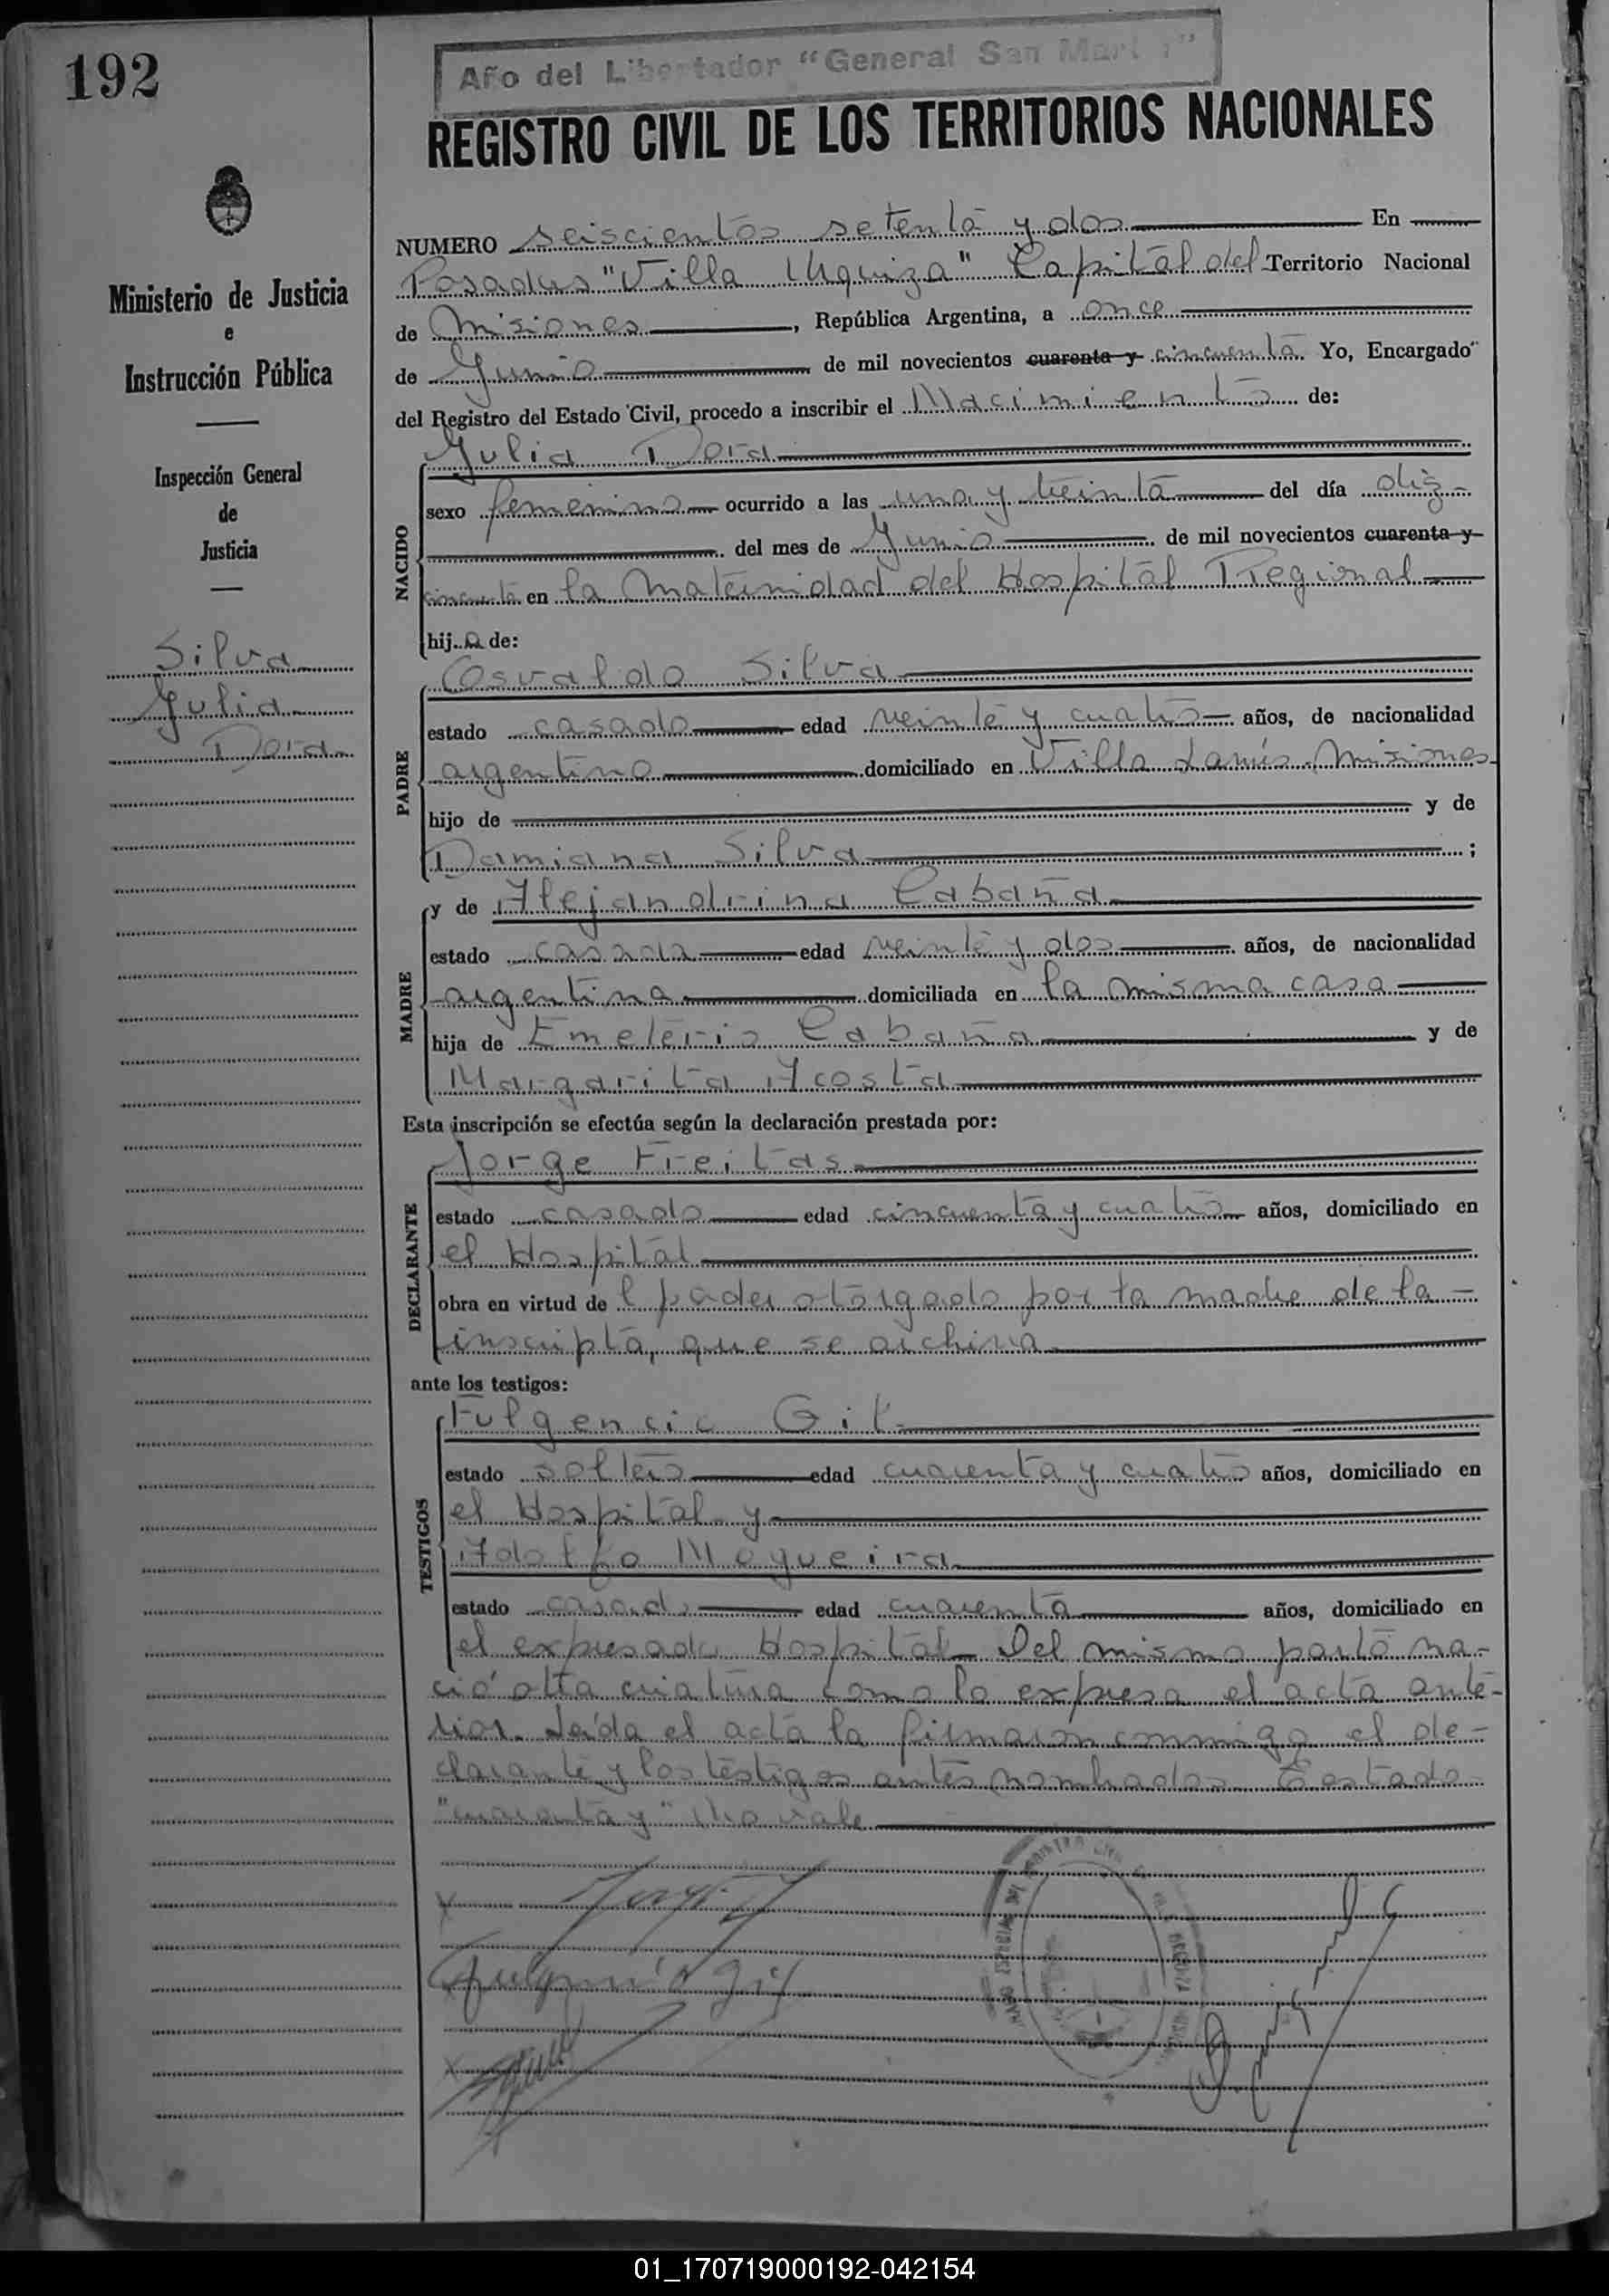 192
Año del Libertador "General San Martín"
REGISTRO CIVIL DE LOS TERRITORIOS NACIONALES
Ministerio de Justicia
e
Instrucción Pública
Inspección General
de
Justicia
Silva
Julia
Dora
NUMERO seiscientos setenta y dos En
Posadas "Villa Urquiza" Capital del Territorio Nacional
de Misiones, República Argentina, a once
de Junio de mil novecientos cuarenta y cincuenta. Yo, Encargado
del Registro del Estado Civil, procedo a inscribir el Nacimiento de:
NACIDO
Julia Dora
sexo femenino ocurrido a las una y treinta del día diez
del mes de Junio de mil novecientos cuarenta y
cincuenta en la Maternidad del Hospital Regional
hija de:
PADRE
Osvaldo Silva
estado casado edad veinte y cuatro años, de nacionalidad
argentino domiciliado en Villa Lanús, Misiones
hijo de y de
Damiana Silva ;
MADRE
y de Alejandrina Cabaña
estado casada edad veinte y dos años, de nacionalidad
argentina domiciliada en la misma casa
hija de Emeterio Cabaña y de
Margarita Acosta
Esta inscripción se efectúa según la declaración prestada por:
DECLARANTE
Jorge Freitas
estado casado edad cincuenta y cuatro años, domiciliado en
el Hospital
obra en virtud del poder otorgado por la madre de la
inscripta, que se archiva
ante los testigos:
TESTIGOS
Fulgencio Gil
estado soltero edad cuarenta y cuatro años, domiciliado en
el Hospital y
Adolfo Nogueira
estado casado edad cuarenta años, domiciliado en
el expresado Hospital. Del mismo parto na-
ció otra criatura como lo expresa el acta ante-
rior. Leída el acta la firmaron conmigo el de-
clarante y los testigos antes nombrados. Testado
"cuarenta y" No vale
Fulgencio Gil
01_170719000192-042154